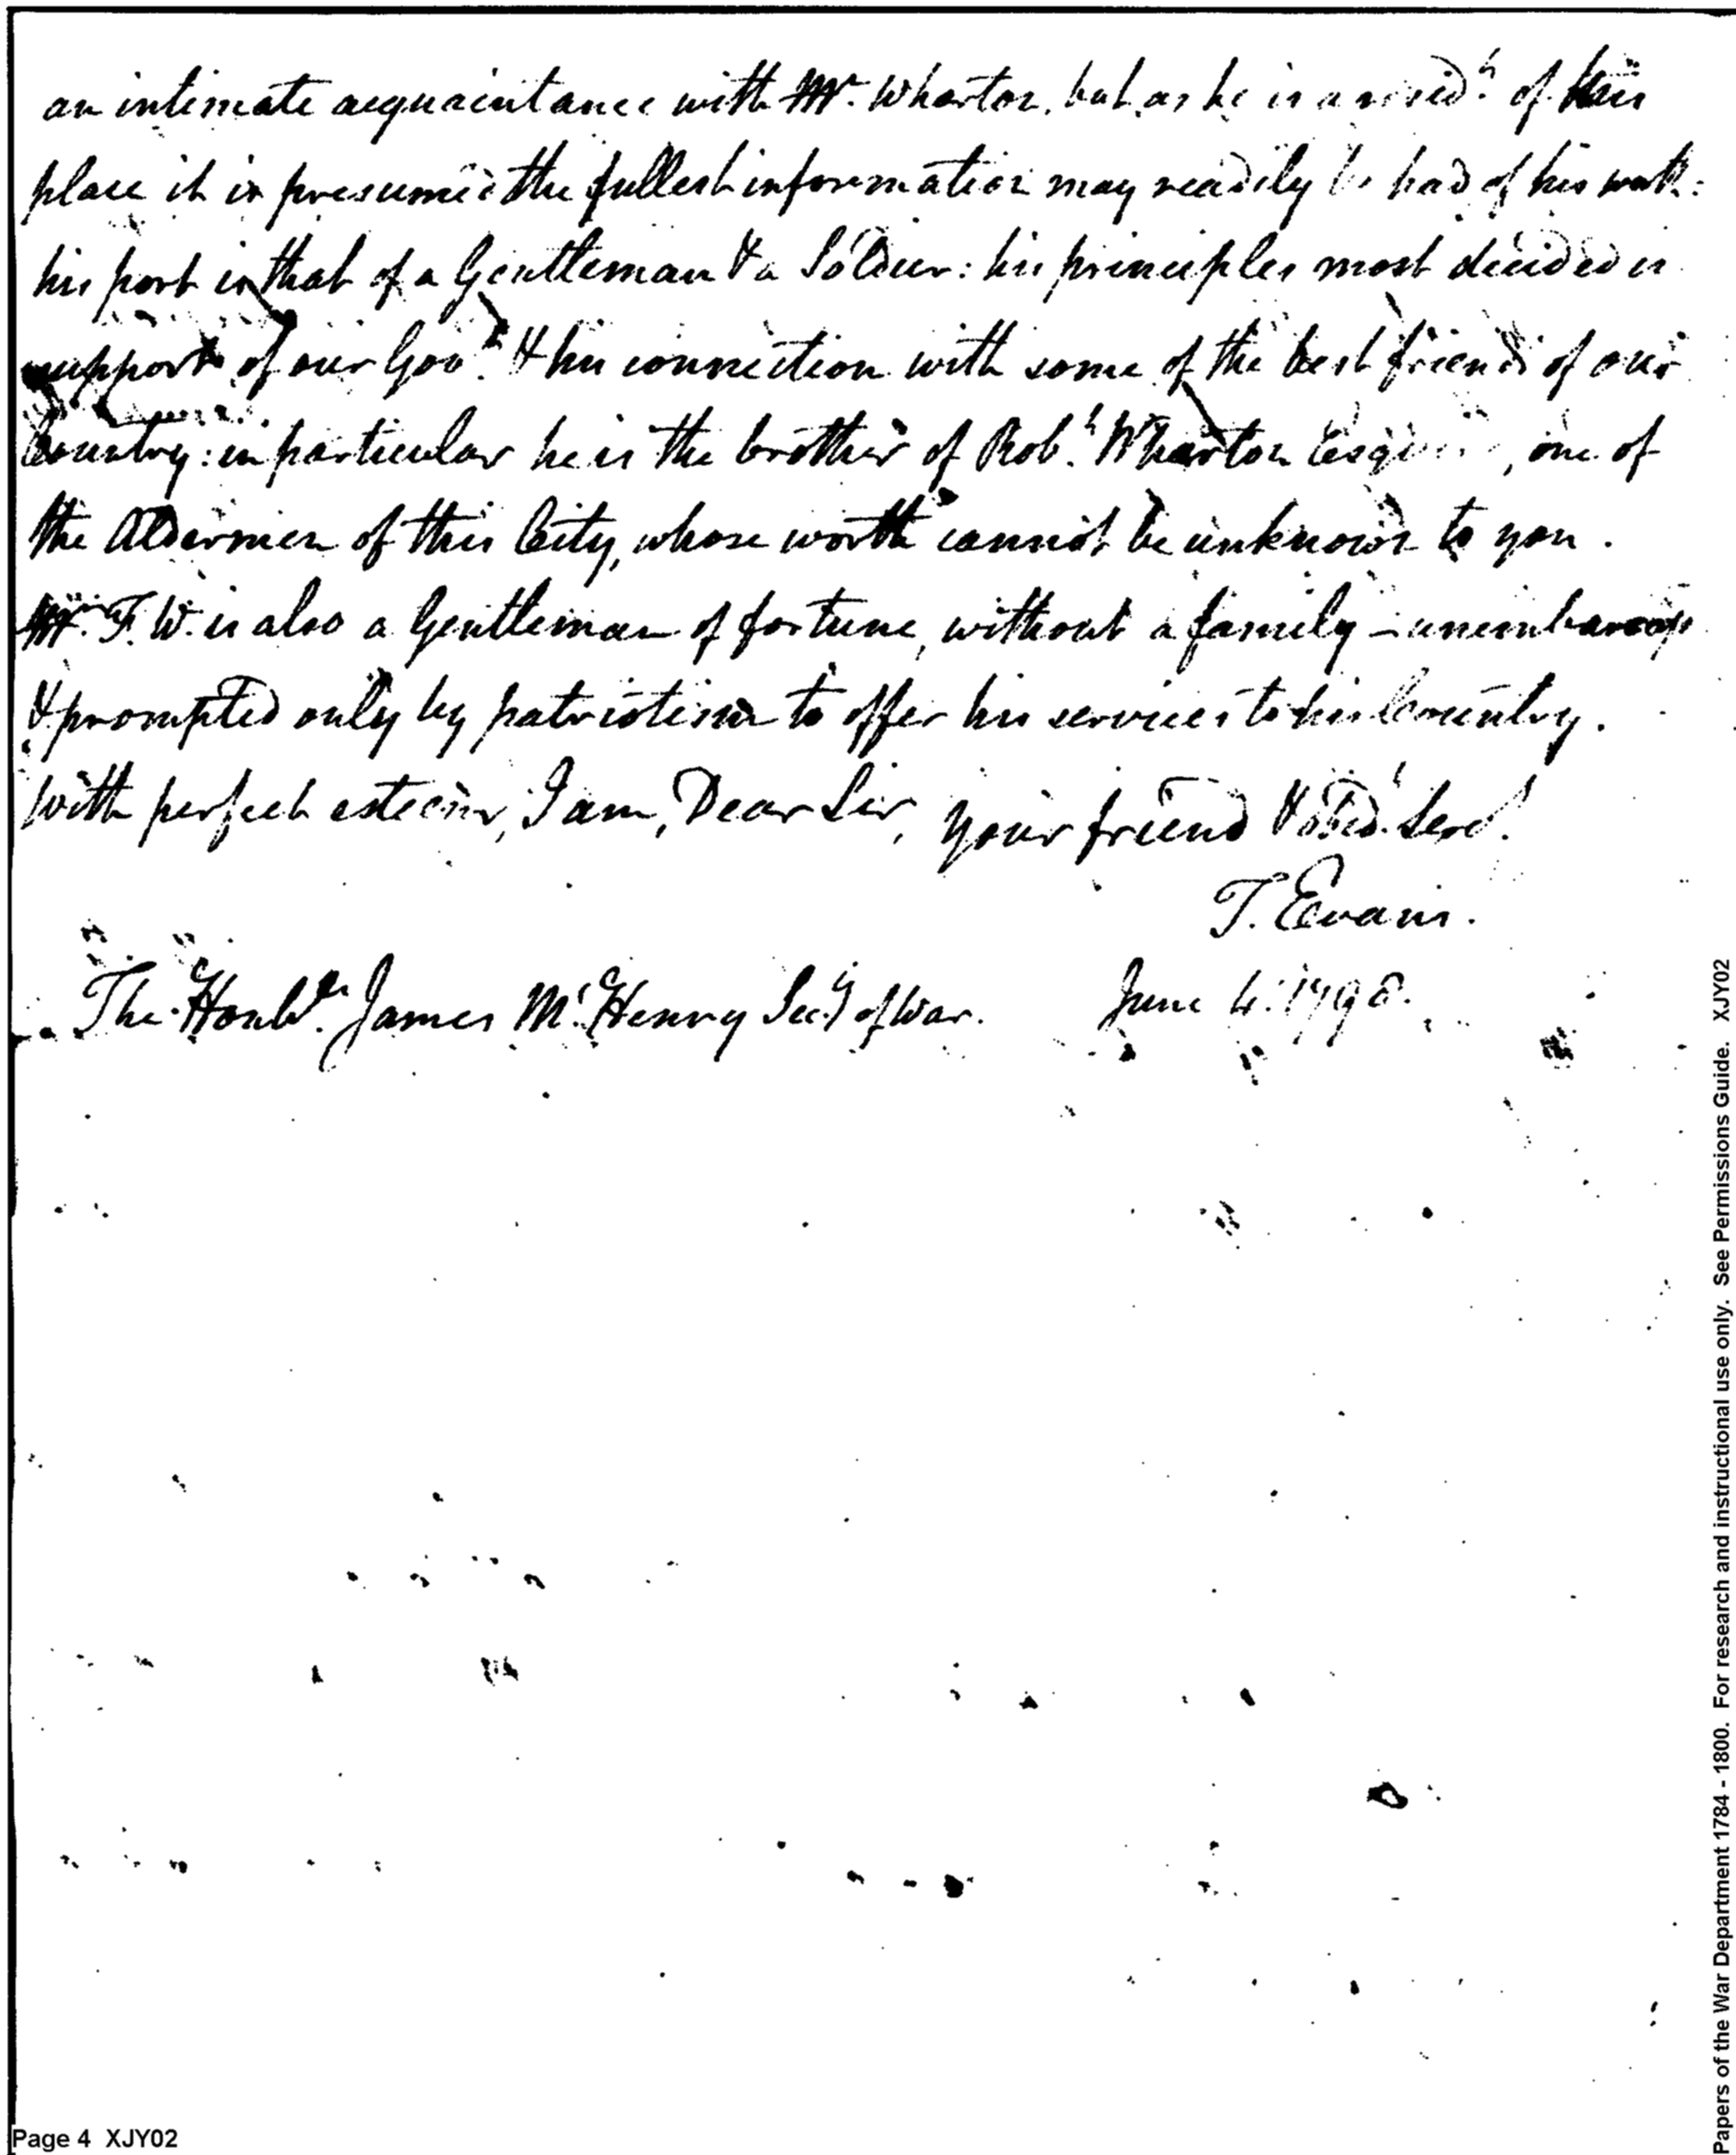 an intimate acquaintance with Mr. Wharton, but as he is a resid.t of this
place it is presumed the fullest information may readily be had of his worth:
his port is that of a Gentleman & a Soldier: his principles most decided in
support of our Gov.t & his connection with some of the best friends of our
Country: in particular he is the brother of Rob.t Wharton Esquire, one of
the Aldermen of this City, whose worth cannot be unknown to you.
Mr. F. W. is also a Gentleman of fortune, without a family –
& prompted only by patriotism to offer his services to his Country.
With perfect esteem, I am, Dear Sir, your friend & obed.t Serv.t
T. Evans.
The Honble. James McHenry Secy of War. June 4. 1798.
Page 4 XJY02
Papers of the War Department 1784 - 1800. For research and instructional use only. See Permissions Guide. XJY02